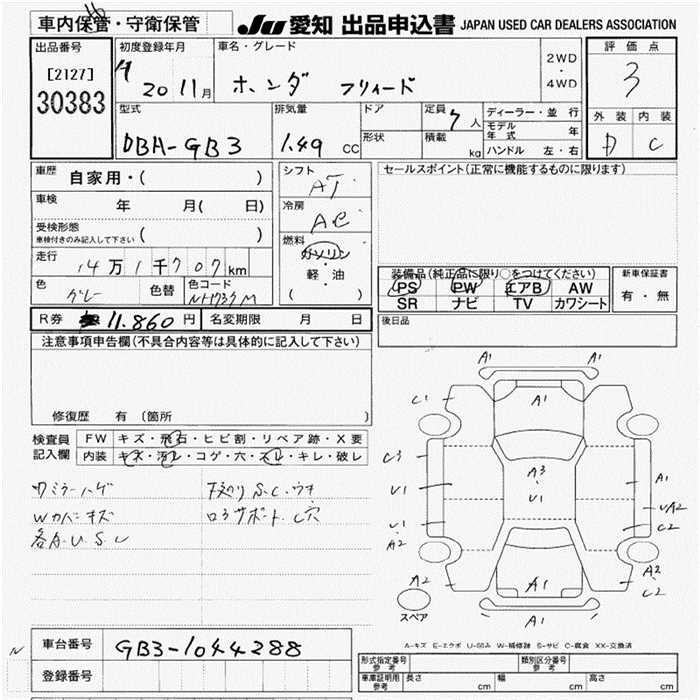 車内保管・守衛保管
JU 愛知 出品申込書 JAPAN USED CAR DEALERS ASSOCIATION
出品番号 初度登録年月 車名・グレード 評価点
[2127] H 20 11月 ホンダ フリィード 2WD・4WD 3
30383
型式 排気量 ドア 定員 7人 ディーラー・並行 外装 内装
モデル年式 年
DBA-GB3 1.49 CC 形状 積載 kg ハンドル 左・右 D C
車歴 自家用・( ) シフト AT セールスポイント(正常に機能するものに限ります)
車検 年 月( 日) 冷房 AC
受検形態 車検付きのみ記入して下さい ( )
燃料 ガソリン 軽・油 ( )
走行 14万1千707km
装備品(純正品に限り○をつけてください) 新車保証書
色 グレー 色替 色コード NH737M
PS PW エアB AW 有・無
SR ナビ TV カワシート
R券 11.860円 名変期限 月 日 後日品
注意事項申告欄(不具合内容等は具体的に記入して下さい)
修復歴 有(箇所 )
検査員記入欄 FW キズ・飛石・ヒビ割・リペア跡・X要
内装 キズ・汚レ・コゲ・穴・スレ・キレ・破レ
ワミラーハゲ
Wカバーキズ
各A.U.S.C
下廻り S.C.ウキ
ロアサポート C穴
A1 A1
C1 A1
C3 A3 A1
U1 U1 UA2
U1 C2
A2 A2
A2 A1 C2
スペア A1
A-キズ E-エクボ U-凹み W-補修跡 S-サビ C-腐食 XX-交換済
N 車台番号 GB3-1044288
登録番号
形式指定番号 参考 類別区分番号 参考
車庫証明用 参考 長さ cm 幅 cm 高さ cm